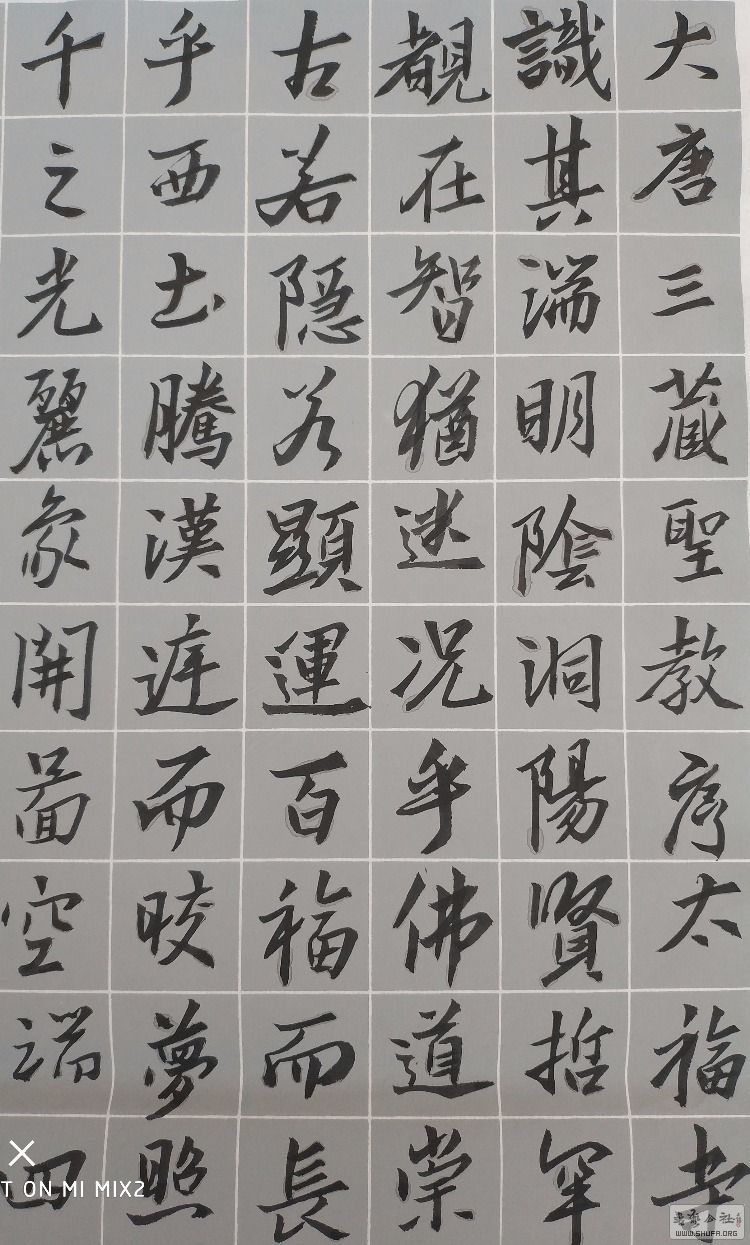 大唐三藏聖教序太福寺
識其湍明陰洞陽賢哲罕
覩在智猶迷况乎佛道崇
古若隱若顯運百福而長
乎西土騰漢庭而皎夢照
千之光麗象開圖空端四
T ON MI MIX2
WWW.SHUFA.ORG